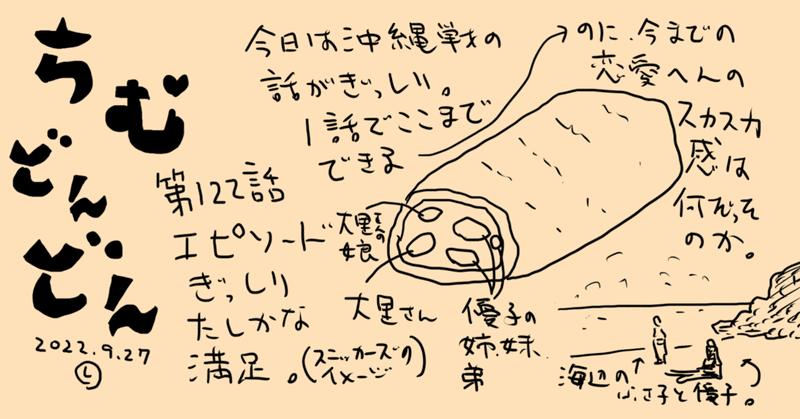 ちむ
どん
どん
第122話
エピソード
ぎっしり
たしかな
満足。(スニッカーズの
イメージ)
2022.9.27
し
今日は沖縄戦の
話がぎっしり。
1話でここまで
できる
のに、今までの
恋愛へんの
スカスカ
感は
何だった
のか。
大里さんの
娘
大里さん
優子の
姉、妹、
弟
海辺の
ふさ子と優子。